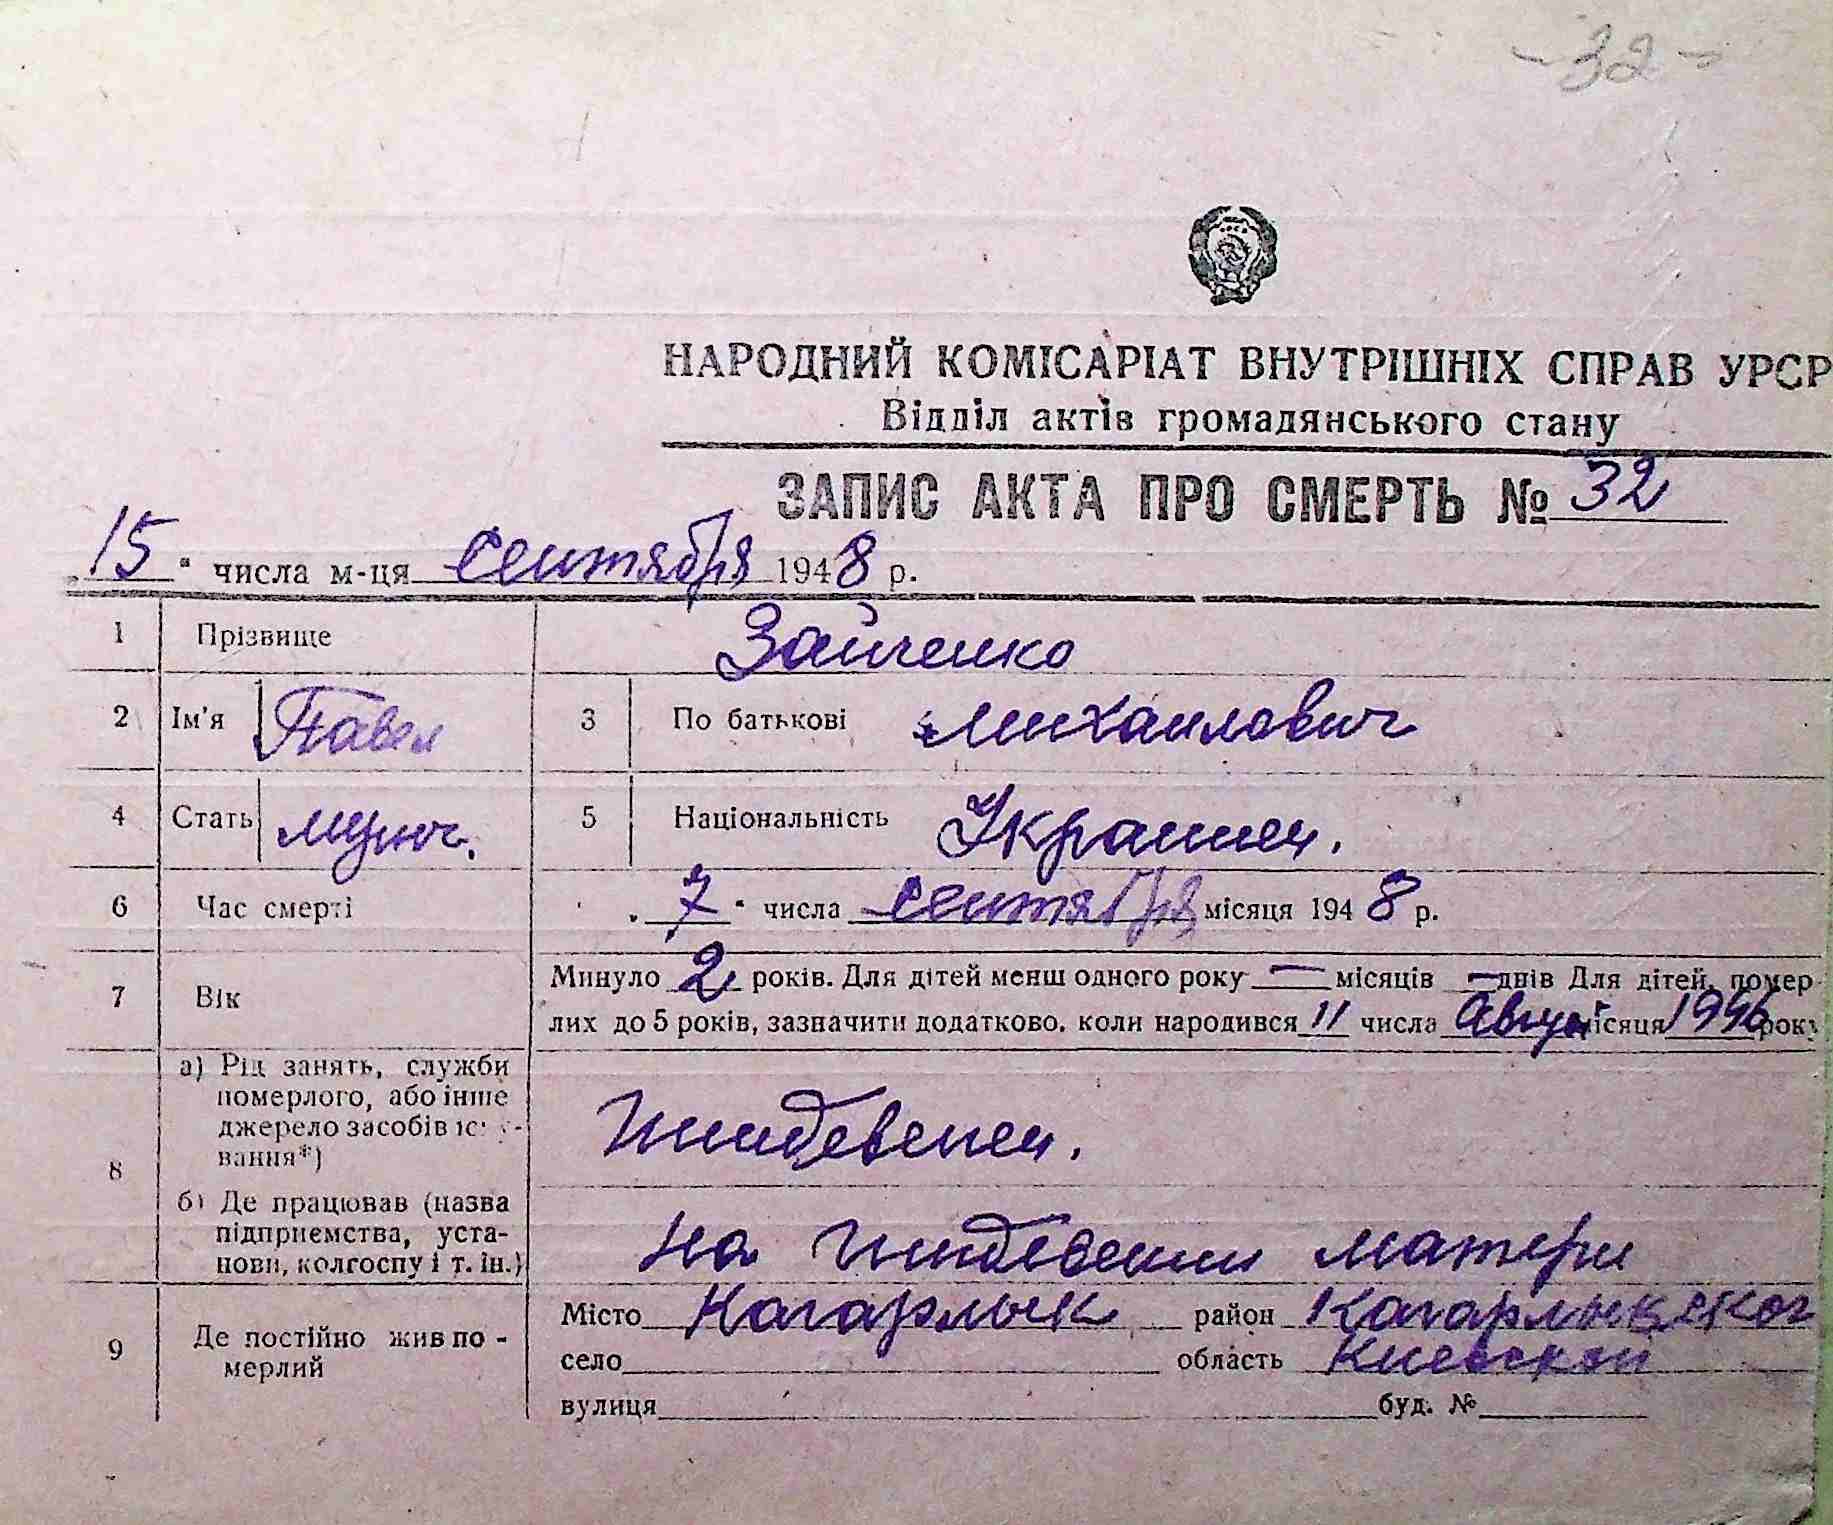 - 32 -
НАРОДНИЙ КОМІСАРІАТ ВНУТРІШНІХ СПРАВ УРСР
Відділ актів громадянського стану
ЗАПИС АКТА ПРО СМЕРТЬ № 32
„15" числа м-ця сентября 1948 р.
1 Прізвище Зайченко
2 Ім'я Павел 3 По батькові Михаилович
4 Стать мужч. 5 Національність Украинец.
6 Час смерті „7" числа сентября місяця 1948 р.
7 Вік Минуло 2 років. Для дітей менш одного року — місяців — днів Для дітей, помер-
лих до 5 років, зазначити додатково, коли народився 11 числа Август місяця 1946 року
8 а) Рід занять, служби
померлого, або інше
джерело засобів існу-
вання*) Иждевенец.
б) Де працював (назва
підприємства, уста-
нови, колгоспу і т. ін.) на иждевении матери
9 Де постійно жив по-
мерлий
Місто Кагарлык район Кагарлыкског
село область Киевской
вулиця буд. №